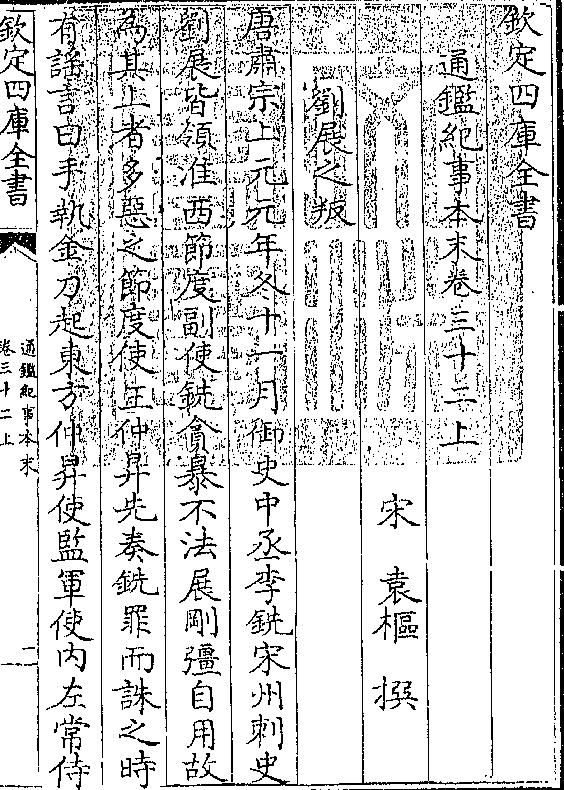 欽定四庫全書
通鑑紀事本末卷三十二上
宋 袁樞 撰
劉展之叛
唐肅宗上元元年冬十一月御史中丞李銑宋州刺史
劉展皆領淮西節度副使銑貪暴不法展剛彊自用故
為其上者多惡之節度使王仲昇先奏銑罪而誅之時
有謠言曰手執金刀起東方仲昇使監軍使内左常侍
欽定四庫全書
通鑑紀事本末
卷三十二上
二